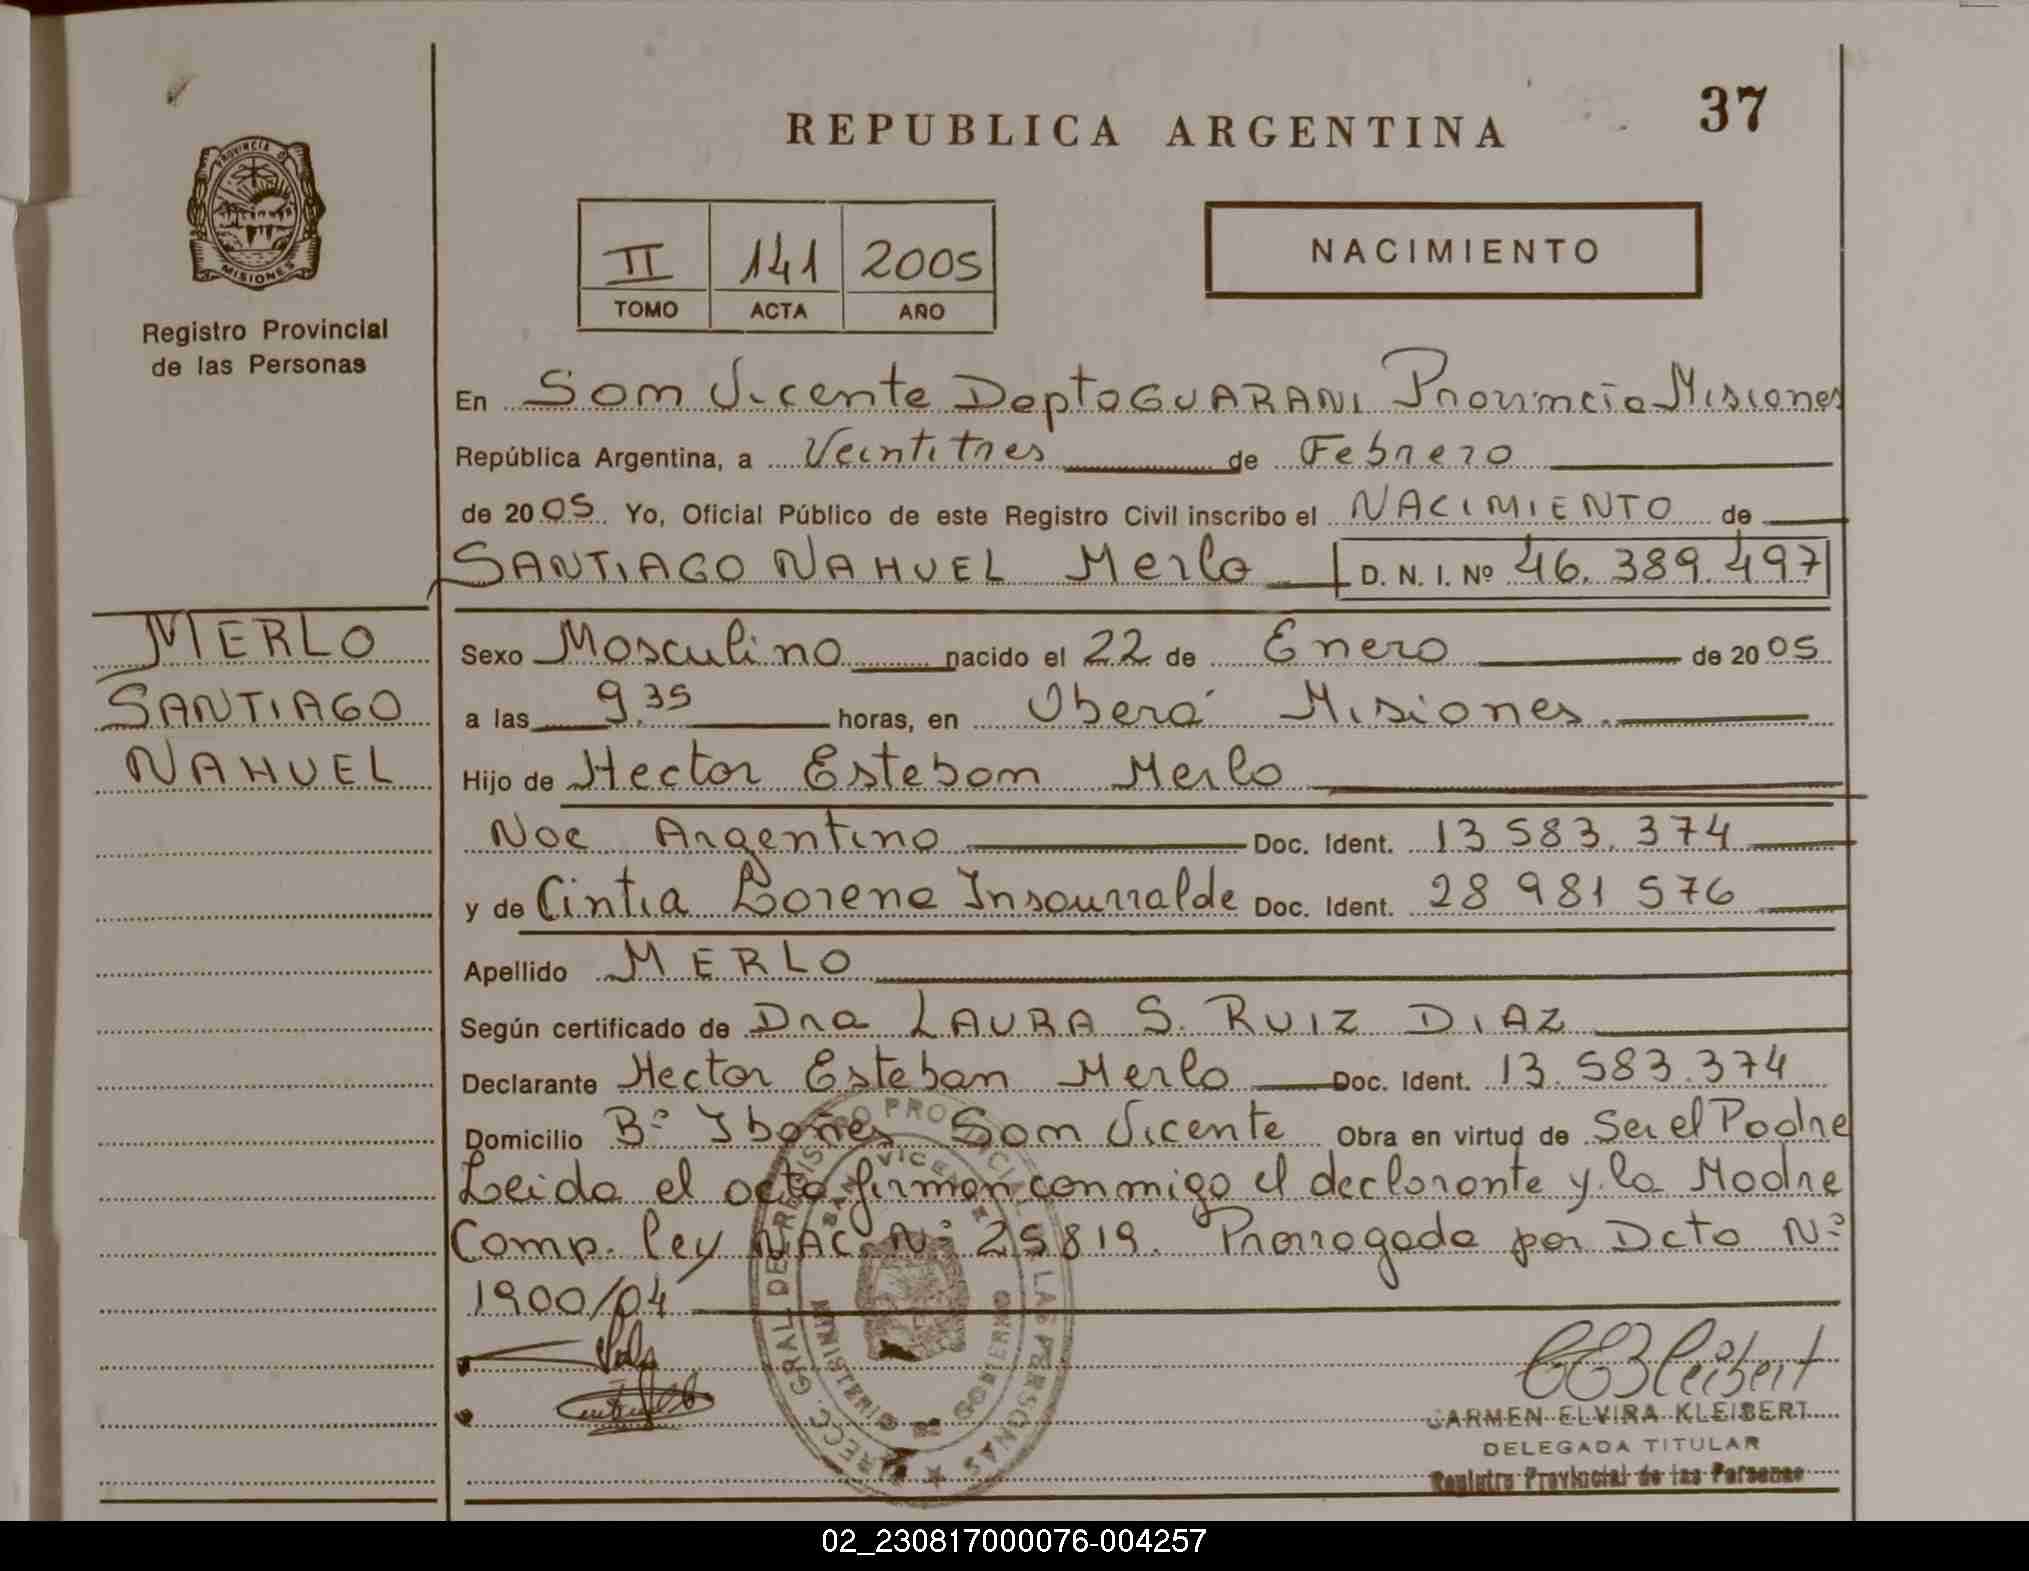 37
REPUBLICA ARGENTINA
PROVINCIA D
MISIONES
Registro Provincial
de las Personas
II 141 2005
TOMO ACTA AÑO
NACIMIENTO
En San Vicente Depto GUARANI Provincia Misiones
República Argentina, a Veintitres de Febrero
de 2005 Yo, Oficial Público de este Registro Civil inscribo el NACIMIENTO de
SANTIAGO NAHUEL Merlo D. N. I. Nº 46.389.497
MERLO
SANTIAGO
NAHUEL
Sexo Masculino nacido el 22 de Enero de 2005
a las 9.35 horas, en Oberá Misiones
Hijo de Hector Esteban Merlo
Nac Argentino Doc. Ident. 13 583.374
y de Cintia Lorena Insaurralde Doc. Ident. 28 981 576
Apellido MERLO
Según certificado de Dra LAURA S. RUIZ DIAZ
Declarante Hector Esteban Merlo Doc. Ident. 13.583.374
Domicilio Bº Ibañes San Vicente Obra en virtud de Ser el Padre
Leida el acta firman conmigo el declarante y la Madre
Comp. ley NAC. Nº 25819. Prorrogada por Dcto Nº
1900/04
CARMEN ELVIRA KLEIBERT
DELEGADA TITULAR
Registro Provincial de las Personas
02_230817000076-004257